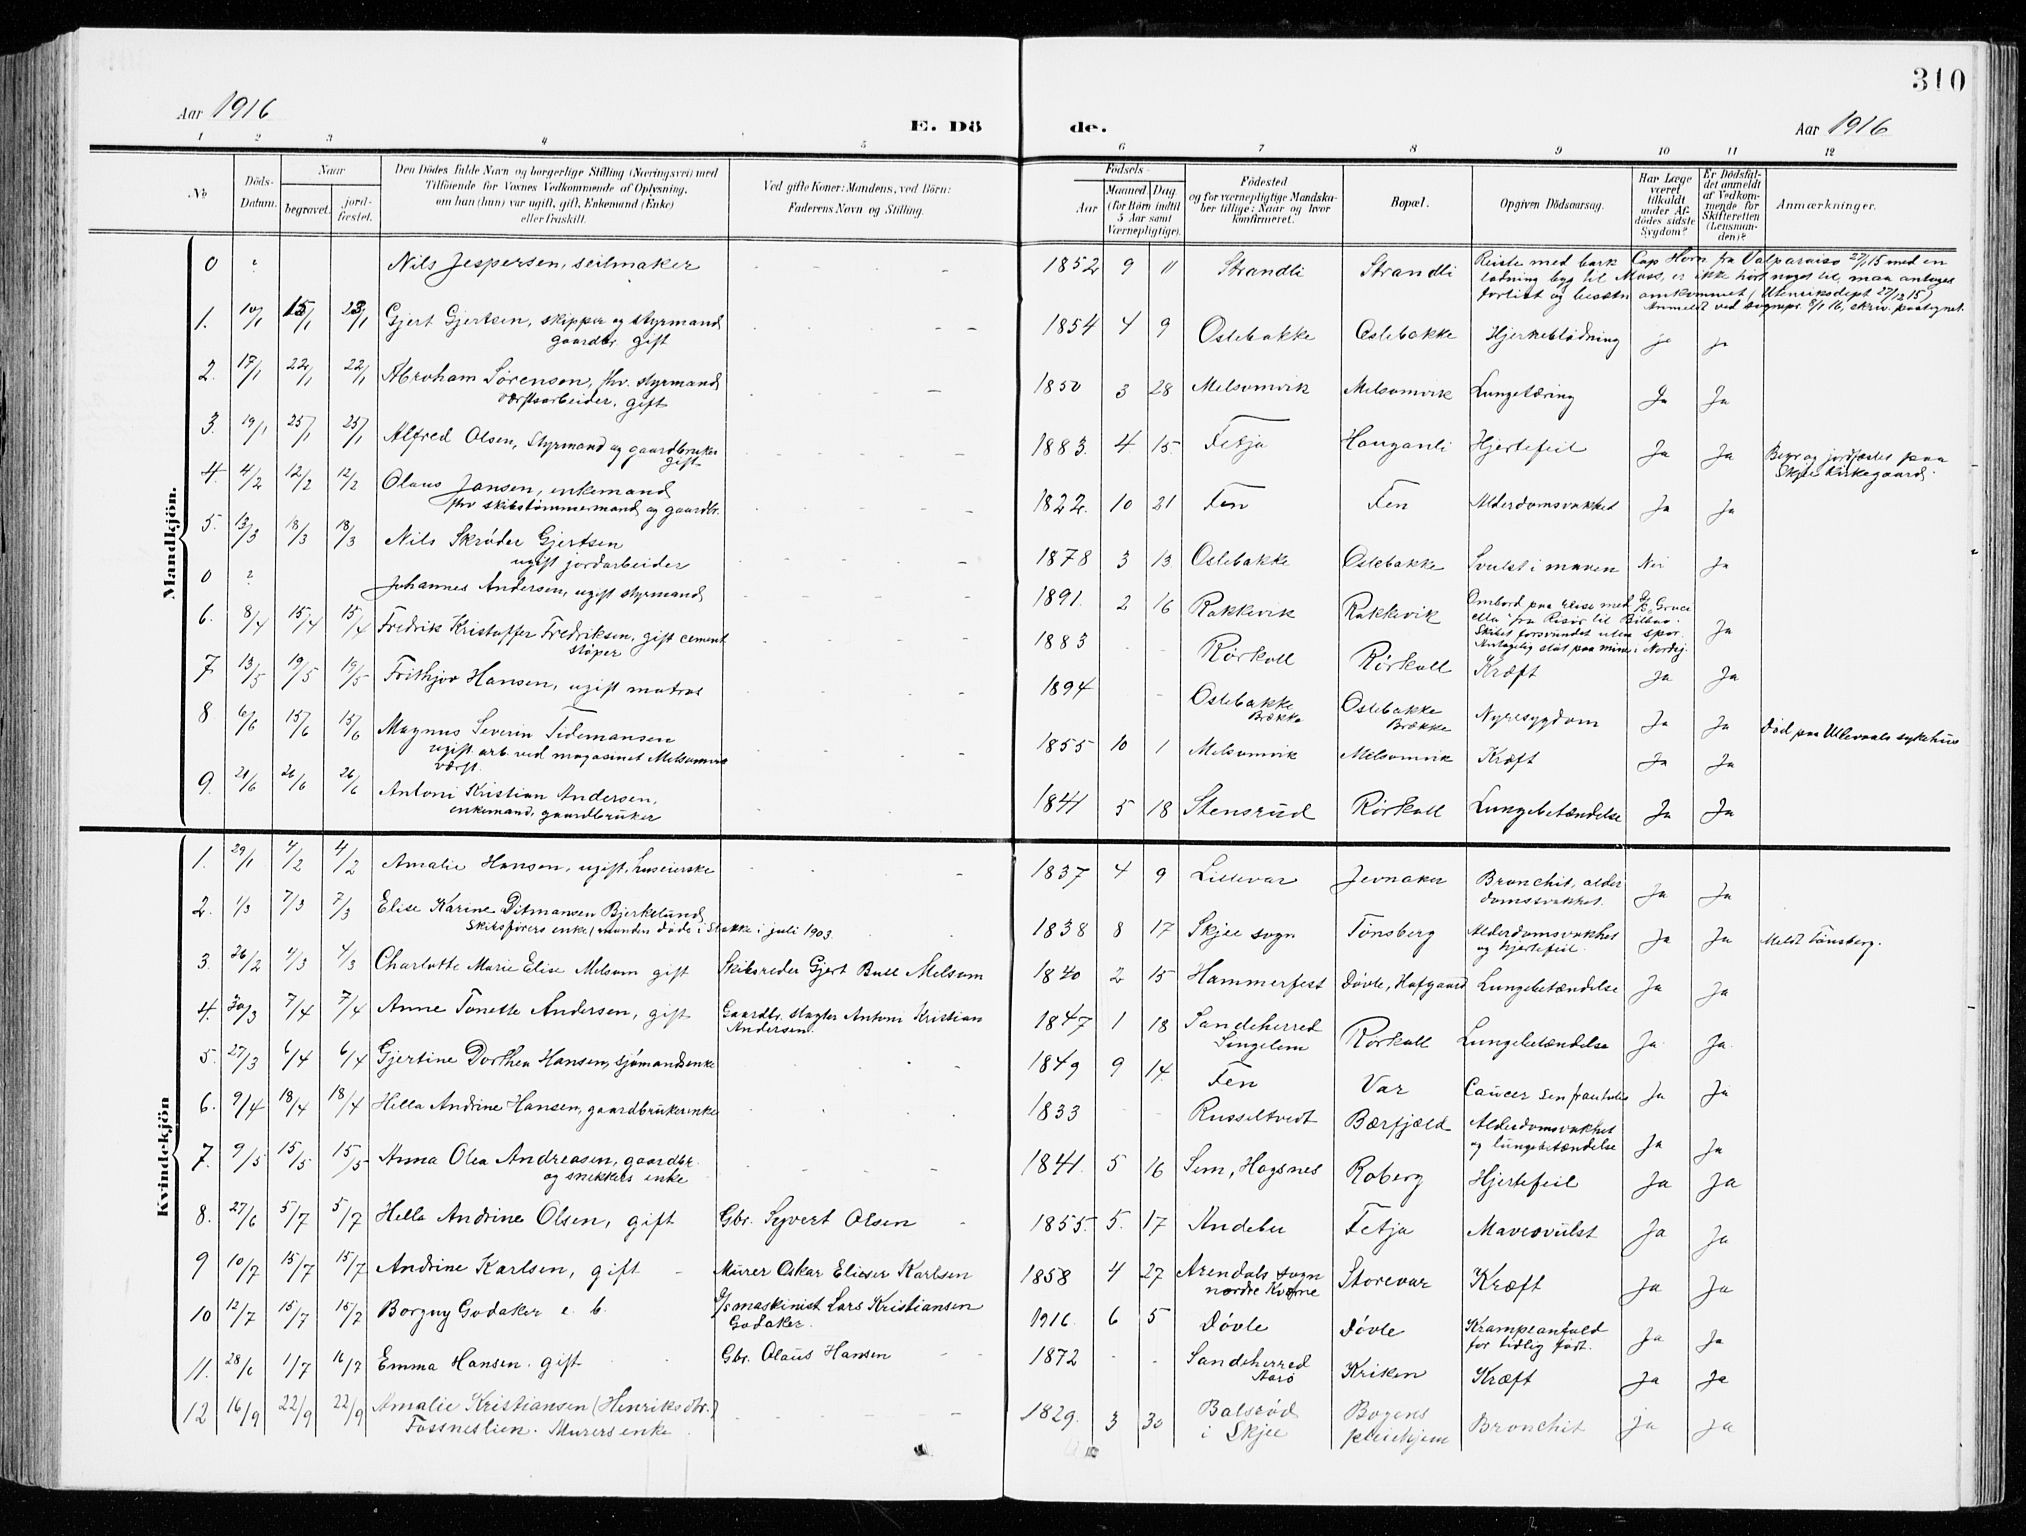 310
Aar 1916
E. Dö de.
Aar 1916
1 2 3 4 5 6 7 8 9 10 11 12
No
Döds-Datum.
Naar
begravet. jord-fæstet.
Den Dödes fulde Navn og borgerlige Stilling (Næringsvei) med
Tilföiende for Voxnes Vedkommende af Oplysning,
om han (hun) var ugift, gift, Enkemand (Enke)
eller fraskilt.
Ved gifte Koner: Mandens, ved Börn:
Faderens Navn og Stilling.
Födsels-
Aar Maaned. Dag
(for Börn indtil 5 Aar samt Værnepligtige).
Födested
og for værnepligtige Mandska-
ber tillige: Naar og hvor
konfirmeret.
Bopæl.
Opgiven Dödsaarsag.
Har Læge
været
tilkaldt
under Af-
dödes sidste
Sygdom?
Er Dödsfal-
det anmeldt
af Vedkom-
mende for
Skifteretten
(Lensman-
den)?
Anmærkninger.
Mandkjön.
0 ? Nils Jespersen, seilmaker 1852 9 11 Strandli Strandli Reiste med bark Cap Horn fra Valparaiso 27/1 15 med en
ladning byg til Moss, er ikke hørt noget til, maa antages
forlist og besætn. omkommet (Utenriksdept 27/12 15)
Anmeldt ved sognepr. 8/1 16, skriv. paategnet.
1. 10/1 15/1 23/1 Gjert Gjertsen, skipper og styrmand
gaardbr. gift 1854 4 9 Oslebakke Oslebakke Hjerneblødning ja ja
2. 17/1 22/1 22/1 Abraham Sørensen, fhv. styrmand
værftsarbeider, gift 1850 3 28 Melsomvik Melsomvik Lungetæring Ja Ja
3. 19/1 25/1 25/1 Alfred Olsen, Styrmand og gaardbruker
gift 1883 4 15 Fetja Hauganli Hjertefeil Ja Ja Begr og jordfæstet paa
Skjee Kirkegaard.
4. 4/2 12/2 12/2 Olaus Jansen, enkemand
fhv skibstømmermand og gaardbr. 1822 10 21 Fen Fen Alderdomsvakhet Ja Ja
5. 13/3 18/3 18/3 Nils Skrøder Gjertsen
ugift jordarbeider 1878 3 13 Oslebakke Oslebakke Svulst i maven Nei Ja
0 ? Johannes Andersen, ugift styrmand 1891. 2 16 Rakkevik Rakkevik Ombord paa Elise med Gruce
ella fra Risør til Bilbao.
Skibet forsvundet uten spor.
Antagelig støt paa mine i Nordsj. Ja
6. 8/4 15/4 15/4 Fredrik Kristoffer Fredriksen, gift cement
støper 1883 - - Rørkoll Rørkoll Kræft Ja Ja
7. 13/5 19/5 19/5 Frithjov Hansen, ugift matros 1894 - Oslebakke
Brække Oslebakke
Brække Nyresygdom Ja Ja Død paa Ullevaals sykehus
8 6/6 15/6 15/6 Magnus Severin Tidemansen
ugift arb ved magasinet Melsomvik
værft. 1855 10 1 Melsomvik Melsomvik Kræft Ja Ja
9. 20/6 26/6 26/6 Antoni Kristian Andersen,
enkemand, gaardbruker 1841 5 18 Stensrud Rørkoll Lungebetændelse Ja Ja
Kvindekjön
1. 29/1 4/2 4/2 Amalie Hansen, ugift, huseierske 1837 4 9 Lillevar Jevnaker Bronchit, alder
domssvakhet. Ja Ja
2. 1/3 7/3 7/3 Elise Karine Ditmansen Bjerkelund
Skibsførers enke (manden døde i Stokke i juli 1903. 1838 8 17 Skjee sogn Tønsberg Alderdomsvakhet
og hjertefeil. Ja Ja Meldt Tønsberg.
3. 26/2 4/3 4/3 Charlotte Marie Elise Melsom gift Skibsreder Gjert Bull Melsom 1840 2 15 Hammerfest Døvle, Hafgaard Lungebetændelse Ja Ja
4. 30/3 7/4 7/4 Anne Tonette Andersen, gift Gaardbr. slagter Antoni Kristian
Andersen. 1847 1 18 Sandeherred
Lingelem Rørkoll Lungebetændelse Ja Ja
5. 27/3 6/4 6/4 Gjertine Dorthea Hansen, sjømandsenke 1849 9 14. Fen Var Cancer Ja Ja
6. 9/4 18/4 18/4 Hella Andrine Hansen, gaardbrukerenke 1833 - - Russeltvedt Bærfjæld Alderdomsvakhet
og lungebetændelse Ja Ja
7. 9/5 15/5 15/5 Anna Olea Andreasen, gaardbr.
og snekkers enke 1841. 5 16 Sem, Hogsnes Roberg Hjertefeil Ja Ja
8. 27/6 5/7 5/7 Hella Andrine Olsen, gift Gbr. Syvert Olsen 1855. 5. 17 Andebu Fetja Mavesvulst Ja Ja
9 10/7 15/7 15/7 Andrine Karlsen, gift Murer Oskar Elieser Karlsen 1858 4 27 Arendals sogn
nordre Storevar Kræft Ja Ja
10 12/7 15/7 15/7 Borgny Godaker e. b. maskinist Lars Kristiansen
Godaker. 1916. 6 5 Døvle Døvle Krampeanfald
for tidlig født. Ja Ja
11. 28/6 1/7 16/7 Emma Hansen. gift Gbr. Olaus Hansen 1872 - - Sandeherred
Aarø Kriken Kræft Ja Ja
12 16/9 22/9 22/9 Amalie Kristiansen (Henriksdtr.)
Fossneslien. Murers enke 1829. 3 30 Balsrød
i Skjee Bogens
pleiehjem Bronchit ja Ja